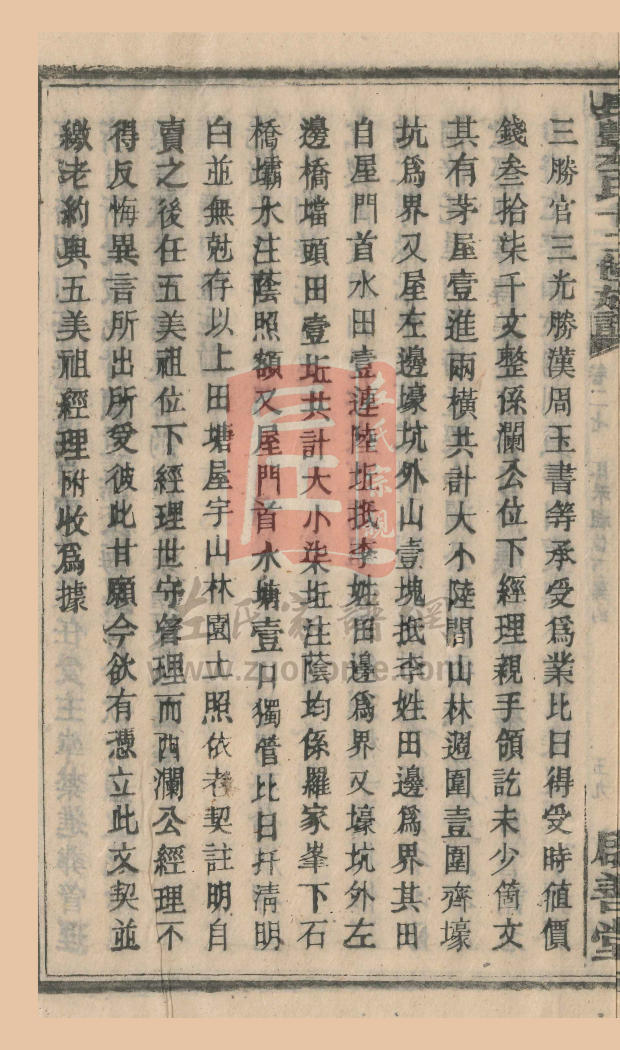 三勝官三光勝漢周玉書等承受爲業比日得受時値價
錢叁拾柒千文整係瀾公位下經理親手領訖未少箇文
其有茅屋壹進兩横共計大小陸間山林週圍壹圍齊壕
坑爲界又屋左邊壕坑外山壹塊抵李姓田邊爲界其田
自屋門首水田壹連陸坵抵李姓田邊爲界又壕坑外左
邊橋壋頭田壹坵共計大小柒坵注蔭均係羅家峯下石
橋壩水注蔭照額又屋門首水塘壹口獨管比日幵清明
白並無尅存以上田塘屋宇山林園土照依老契註明自
賣之後任五美祖位下經理世守管理而西瀾公經理不
得反悔異言所出所受彼此甘願今欲有憑立此文契並
繳老約與五美祖經理附收爲據
卷二七
五九
善堂
左氏宗親
左氏家譜網
www.zuokome.com